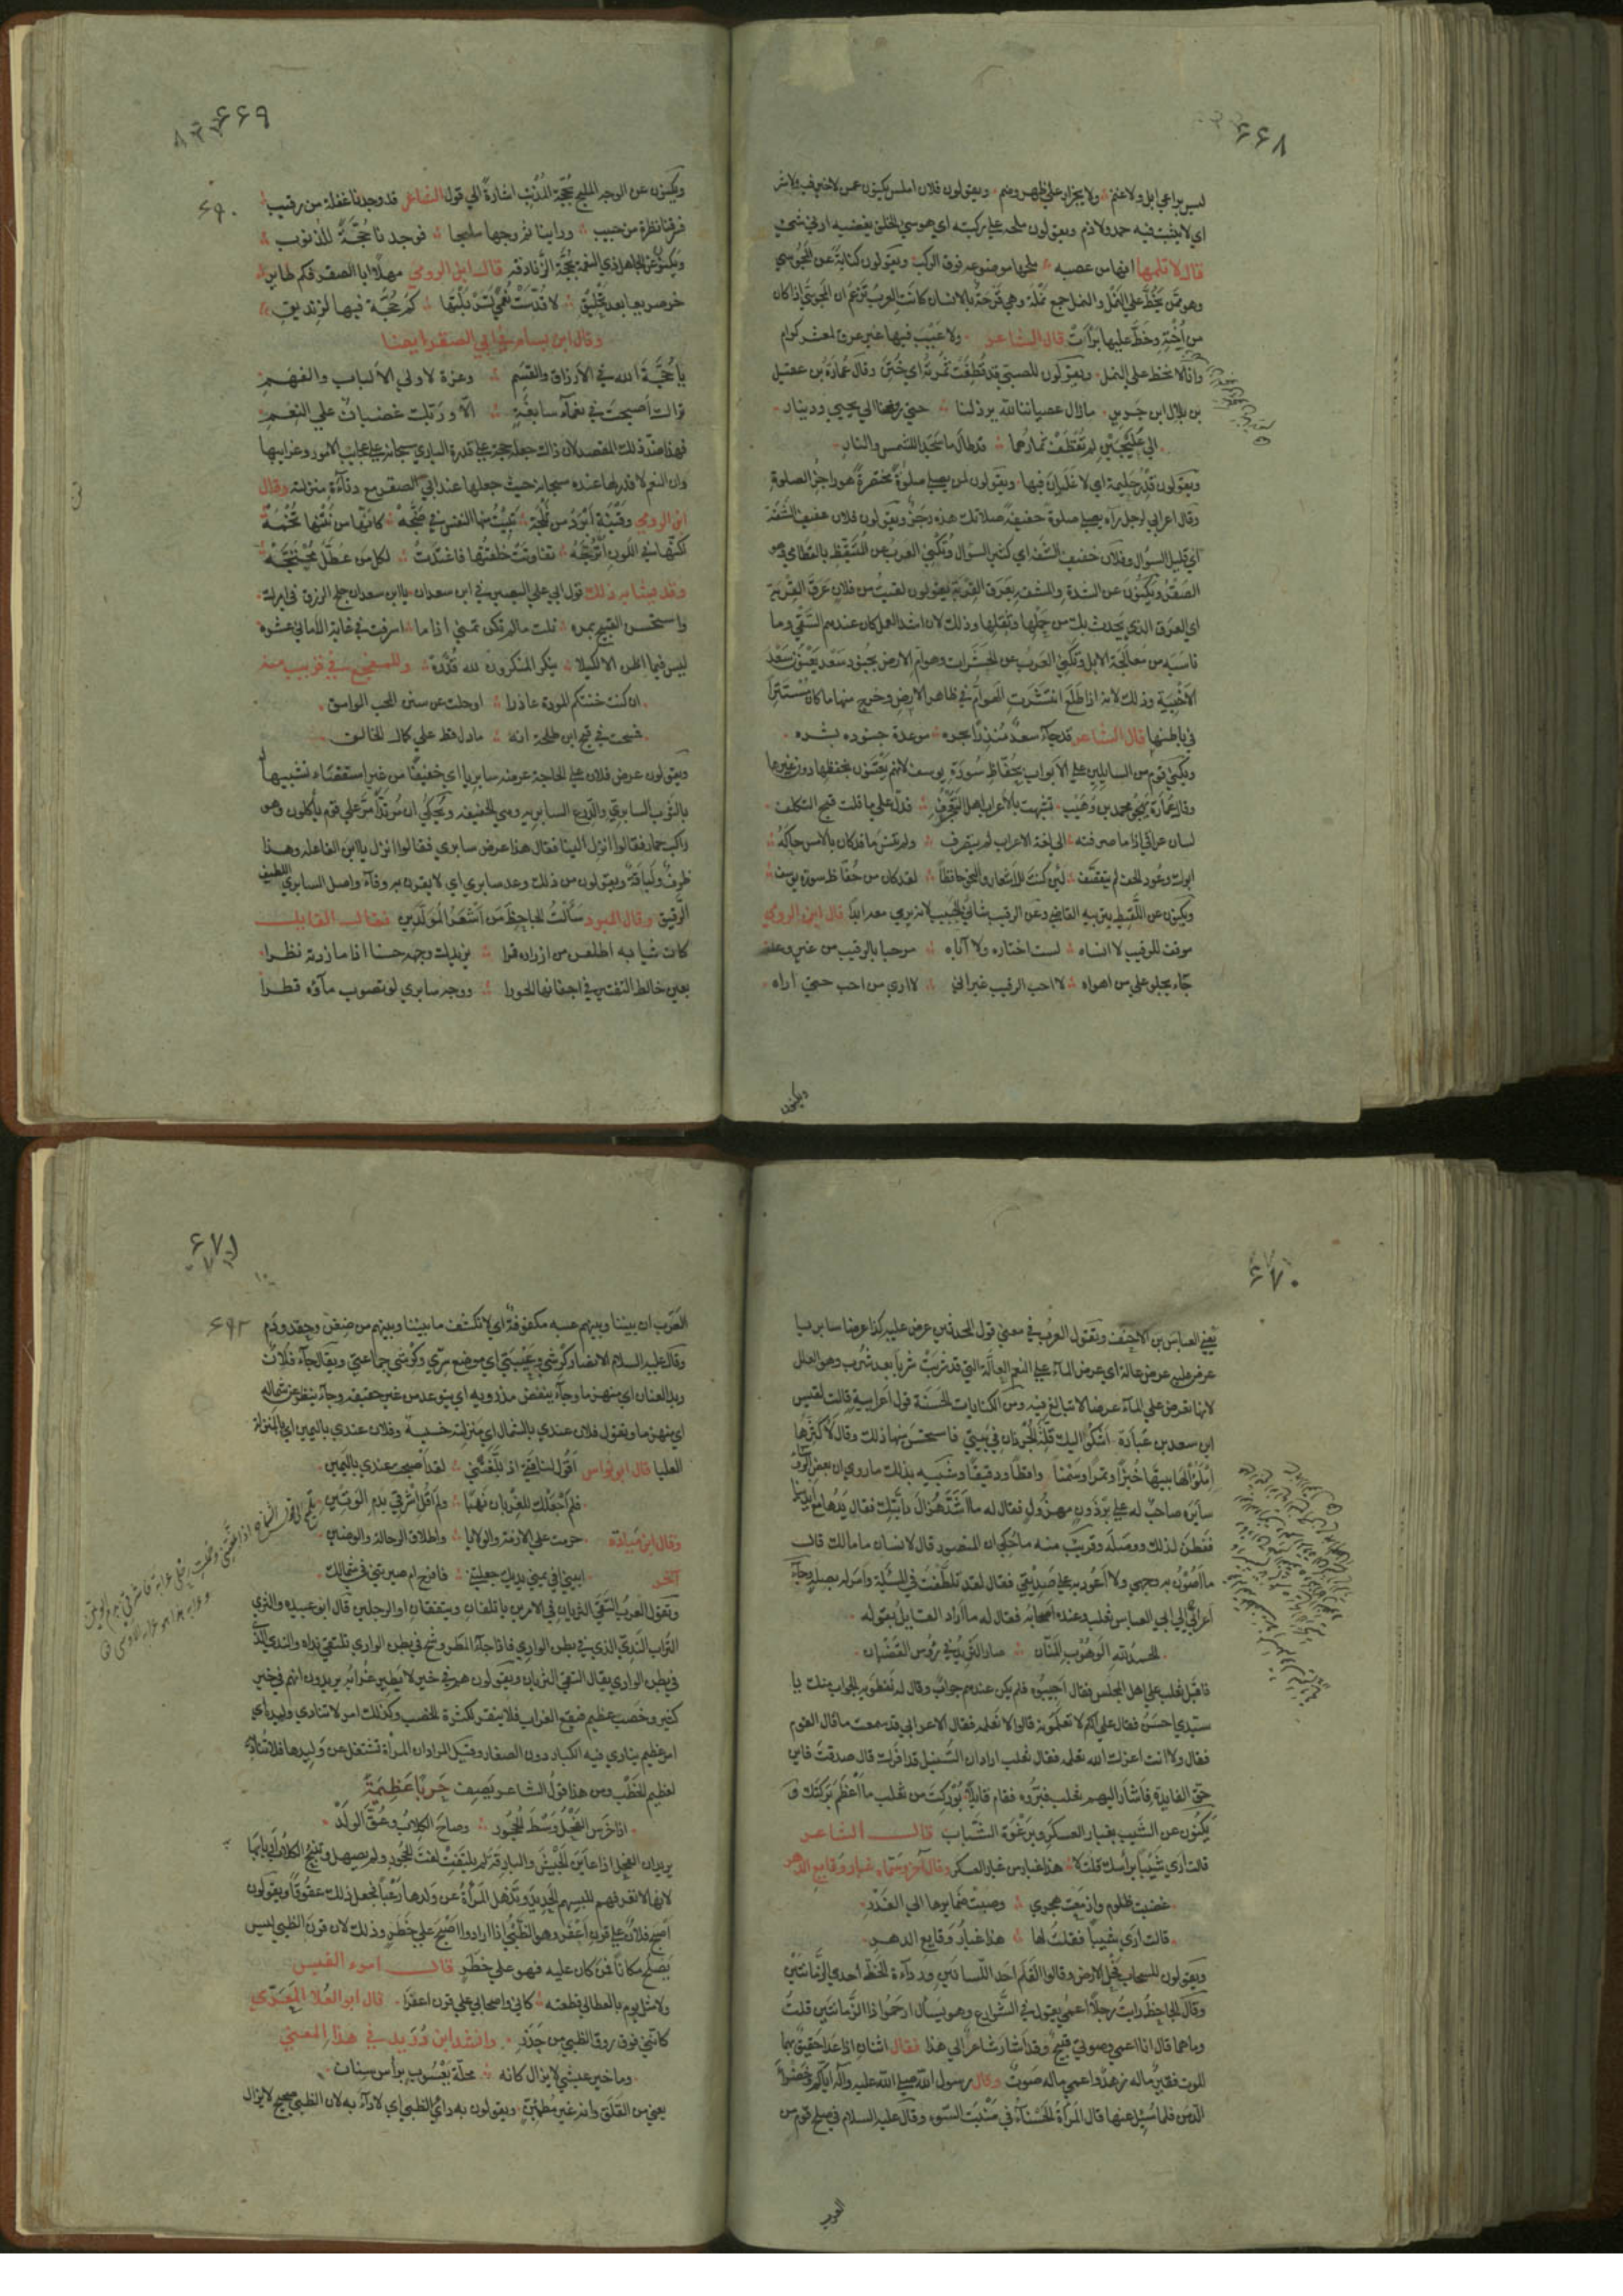 ۶۶۸
ليس براعي ابل ولا غنم ولا بجزار علي ظهر وضم ويقولون فلان املس يكنون عمن لا خير فيه ولا شر
اي لا يثبت فيه حمد ولا ذم ويقولون ملحه علي ركبته اي هو سيئ الخلق يغضبه ادني شيئ
قال لا تلمها انها من عصبة ملحها موضوعة فوق الركب ويقولون كناية عن المجوسي
وهو ممن يخط علي النمل والنمل جمع نملة وهي قرحة بالانسان كانت العرب تزعم ان المجوسي اذا كان
من اخته وخط عليها برأت قال الشاعر ولا عيب فيها غير عرق لمعشر كرام
وانا لا نخط علي النمل ويقولون للصبي قد قطفت ثمرته اي ختن وقال عمارة بن عقيل
بن بلال ابن جرير ما زال عصياننا لله يرذلنا حتي دفعنا الي يحيي ودينار
الي عليجين لم تقطف ثمارهما قد طال ما سجدا للشمس والنار
ويقولون قدر حليمة اي لا غليان فيها ويقولون لمن يصلي صلوة مختصرة هو راجز الصلوة
وقال اعرابي لرجل رآه يصلي صلوة خفيفة صلاتك هذه رجز ويقولون فلان عفيف الشفة
اي قليل السؤال وفلان خفيف الشفة اي كثير السؤال وتكني العرب عن المتيقظ بالقطامي وهو
الصقر ويكنون عن الشدة والمشقة بعرق القربة يقولون لقيت من فلان عرق القربة
اي العرق الذي يحدث بك من حملها وثقلها وذلك لان اشد العمل كان عندهم السقي وما
ناسبه من معالجة الابل وتكني العرب عن الحشرات وهوام الارض بجنود سعد يعنون سعد
الاخبية وذلك لانه اذا طلع انتشرت الهوام في ظاهر الارض وخرج منها ما كان مستترا
في باطنها قال الشاعر قد جاء سعد منذرا بحره موعدة جنوده بشره
ويكني قوم من السايلين علي الابواب بحفاظ سورة يوسف لانهم يعتنون بحفظها دون غيرها
وقال عمارة يهجو محمد بن وهيب تشبهت بالاعراب اهل التعجرف فدل علي ما قلت قبح التكلف
لسان عراقي اذا ما صرفته الي لغة الاعراب لم يتصرف ولم تنس ما قد كان بالامس حاكه
ابوك وعود الجف لم يتقصف لئن كنت للاشعار والنحو حافظا لقد كان من حفاظ سورة يوسف
ويكنون عن اللقيط بتربية القاضي وعن الرقيب بثاني الحبيب لانه يري معه ابدا قال ابن الرومي
موقف للرقيب لا انساه لست اختاره ولا آباه مرحبا بالرقيب من غير وعد
جاء يجلو علي من اهواه لا احب الرقيب غير اني لا اري من احب حتي اراه
ويكنون
۶۶۹
۶۹۰
ويكنون عن الوجه المليح بحجة المذنب اشارة الي قول الشاعر قد وجدنا غفلة من رقيب
فسرقنا نظرة من حبيب وراينا ثم وجها مليحا فوجدناه حجة للذنوب
ويكنون عن الجاهل ذي النعمة بحجة الزنادقة قال ابن الرومي مهلا ابا الصقر فكم طاير
خر صريعا بعد تحليق لا قدست نعمي تسربلتها كم حجة فيها لزنديق
وقال ابن بسام في ابي الصقر ايضا
يا حجة الله في الارزاق والقسم وعزة لاولي الالباب والفهم
تراك اصبحت في نعماء سابغة الا وربك غضبان علي النعم
فهذا ضد ذلك المقصد لان ذاك جعله حجة علي قدرة الباري سبحانه علي عجايب الامور وغرايبها
وان النعم لا قدر لها عنده سبحانه حيث جعلها عند ابي الصقر مع دناءة منزلته وقال
ابن الرومي وقينة ابرد من ثلجة تبيت منها النفس في ضجة كانها من نتنها تخمة
لكنها في اللون اترجة تفاوتت خلقتها فاغتدت لكل من عطل محتجة
وقد يشابه ذلك قول ابي علي البصير في ابن سعدان يا ابن سعدان جلح الرزق في امرك
واستحسن القبيح بمره نلت ما لم تكن تمني اذا ما اسرفت في غاية الاماني عشره
ليس فيما اظن الا لكيلا ينكر المنكرون لله قدره وللمفجع في قريب منه
ان كنت خنتكم المودة غادرا او حلت عن سنن المحب الوامق
فمسخت في قبح ابن طلحة انه ما دل قط علي كمال الخالق
ويقولون عرض فلان علي الحاجة عرضا سابريا اي خفيفا من غير استقصاء تشبيها له
بالثوب السابري والدرع السابرية وهي الخفيفة ويحكي ان مرتدا مر علي قوم يأكلون وهو
راكب حمار فقالوا انزل الينا فقال هذا عرض سابري فقالوا انزل يا ابن الفاعلة وهذا
ظرف ولباقة ويقولون من ذلك وعد سابري اي لا يقرن به وفاء واصل السابري اللطيف
الرقيق وقال المبرد سألت الجاحظ من اشعر المولدين فقال القايل
كان ثيابه اطلعن من ازراره قمرا يزيدك وجهه حسنا اذا ما زدته نظرا
بعين خالط التفتير في اجفانها الحورا ووجه سابري لو تصوب ماؤه قطرا
۶۷۰
يعني العباس بن الاحنف وتقول العرب في معني قول المحدثين عرض عليه كذا عرضا سابريا
عرض علي عرض عالة اي عرض الماء علي النعم العالة التي قد شربت شربا بعد شرب وهو العلل
لانها تعرض علي الماء عرضا لا تبالغ فيه ومن الكنايات الحسنة قول اعرابية قالت لقيس
ابن سعد بن عبادة اشكو اليك قلة الجرذان في بيتي فاستحسن منها ذلك وقال لاكثرنها
املؤا لها بيتها خبزا وتمرا وسمنا واقطا ودقيقا وشبيه بذلك ما روي ان بعض الرؤساء
سايره صاحب له علي برذون مهزول فقال له ما اشد هزال دابتك فقال يدها مع ايدينا
ففطن لذلك ووصله وقريب منه ما حكي ان المنصور قال لانسان ما مالك قال
ما اصون به وجهي ولا اعود به علي صديقي فقال لقد تلطفت في المسئلة وامر له بصلة وجاء
اعرابي الي ابي العباس ثعلب وعنده اصحابه فقال له ما اراد القايل بقوله
الحمد لله الوهوب المنان صار الثريد في رؤس القضبان
فاقبل ثعلب علي اهل المجلس فقال اجيبوه فلم يكن عندهم جواب وقال له نفطويه الجواب منك يا
سيدي احسن فقال علي انكم لا تعلمونه قالوا لا نعلمه فقال الاعرابي قد سمعت ما قال القوم
فقال ولا انت اعزك الله تعلمه فقال ثعلب اراد ان السنبل قد افرك قال صدقت فاين
حق الفايدة فاشار اليهم ثعلب فبروه فقام قايلا بوركت من ثعلب ما اعظم بركتك و
يكنون عن الشيب بغبار العسكر وبرغوة الشباب قال الشاعر
قالت اري شيبا براسك قلت لا هذا غبار من غبار العسكر وقال آخر وسماه غبار وقايع الدهر
غضبت ظلوم وازمعت هجري وصبت ضمايرها الي الغدر
قالت اري شيبا فقلت لها هذا غبار وقايع الدهر
ويقولون للسحاب فحل الارض وقالوا القلم احد اللسانين ورداءة الخط احدي الزمانتين
وقال الجاحظ رايت رجلا اعمي يقول في الشوارع وهو يسأل ارحموا ذا الزمانتين قلت
وما هما قال انا اعمي وصوتي قبيح وقد اشار شاعر الي هذا فقال اثنان اذا عدا حقيق بهما
الموت فقير ماله زهد واعمي ماله صوت وقال رسول الله صلي الله عليه وآله اياكم وخضراء
الدمن فلما سئل عنها قال المرأة الحسناء في منبت السوء وقال عليه السلام في صلح قوم من
العرب
۶۷۱
۶۹۲
العرب ان بيننا وبينهم عيبة مكفوفة اي لا نكشف ما بيننا وبينهم من ضغن وحقد ودم
وقال عليه السلام الانصار كرشي وعيبتي اي موضع سري وكرشي جماعتي ويقال جاء فلان
ربد العنان اي منهزما وجاء ينفض مذرويه اي يتوعد من غير حقيقة وجاء ينظر عن شماله
اي منهزما وتقول فلان عندي بالشمال اي منزلته خسيسة وفلان عندي باليمين اي بالمنزلة
العليا قال ابو نواس اقول لناقتي اذ بلغتني لقد اصبحت عندي باليمين
فلم اجعلك للغربان نهبا ولم اقل اشرقي بدم الوتين
وقال ابن ميادة حرمت علي الازمة والولايا واعلاق الرحالة والوضين
آخر ابيني افي يمني يديك جعلتني فافرح ام صيرتني في شمالك
وتقول العرب التقي الثريان في الامرين يأتلفان ويتفقان او الرجلين قال ابو عبيدة والثري
التراب الندي الذي في بطن الوادي فاذا جاء المطر وسح في بطن الوادي تلتقي نداه والندي الذي
في بطن الوادي يقال التقي الثريان ويقولون هم في خير لا يطير غرابه يريدون انهم في خير
كثير وخصب عظيم فيقع الغراب فلا ينفر لكثرة الخصب وكذلك امر لا ينادي وليده اي
امر عظيم ينادي فيه الكبار دون الصغار وقيل المراد ان المرأة تشتغل عن وليدها فلا تناديه
لعظيم الخطب ومن هذا قول الشاعر يصف حربا عظيمة
اذا خرس الفحل وسط الحجور وصاح الكلاب وعق الولد
يريد ان الفحل اذا عاين الجيش والبارقة لم يلتفت لفت الحجور ولم يصهل وتنبح الكلاب اربابها
لانها لا تعرفهم للبسهم الحديد وتذهل المرأة عن ولدها رعبا فجعل ذلك عقوقا ويقولون
اصبح فلان علي قرن اعفر وهو الظبي اذا ارادوا اصبح علي خطر وذلك لان قرن الظبي ليس
يصلح مكانا فمن كان عليه فهو علي خطر قال امرء القيس
ولا مثل يوم بالعظالي قطعته كاني واصحابي علي قرن اعفرا قال ابو العلا المعري
كانني فوق روق الظبي من حذر وانشد ابن دريد في هذا المعني
وما خير عيش لا يزال كانه محلة يعسوب براس سنان
يعني من القلق وانه غير مطمئن ويقولون به داء الظبي اي لا داء به لان الظبي صحيح لا يزال